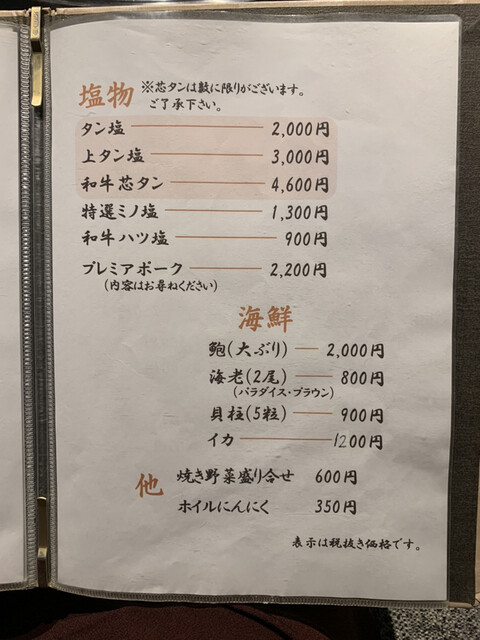 塩物 ※芯タンは数に限りがございます。
ご了承下さい。
タン塩 2,000円
上タン塩 3,000円
和牛芯タン 4,600円
特選ミノ塩 1,300円
和牛ハツ塩 900円
プレミアポーク 2,200円
(内容はお尋ねください)
海鮮
鮑(大ぶり) 2,000円
海老(2尾) 800円
(パラダイス・ブラウン)
貝柱(5粒) 900円
イカ 1200円
他 焼き野菜盛り合せ 600円
ホイルにんにく 350円
表示は税抜き価格です。